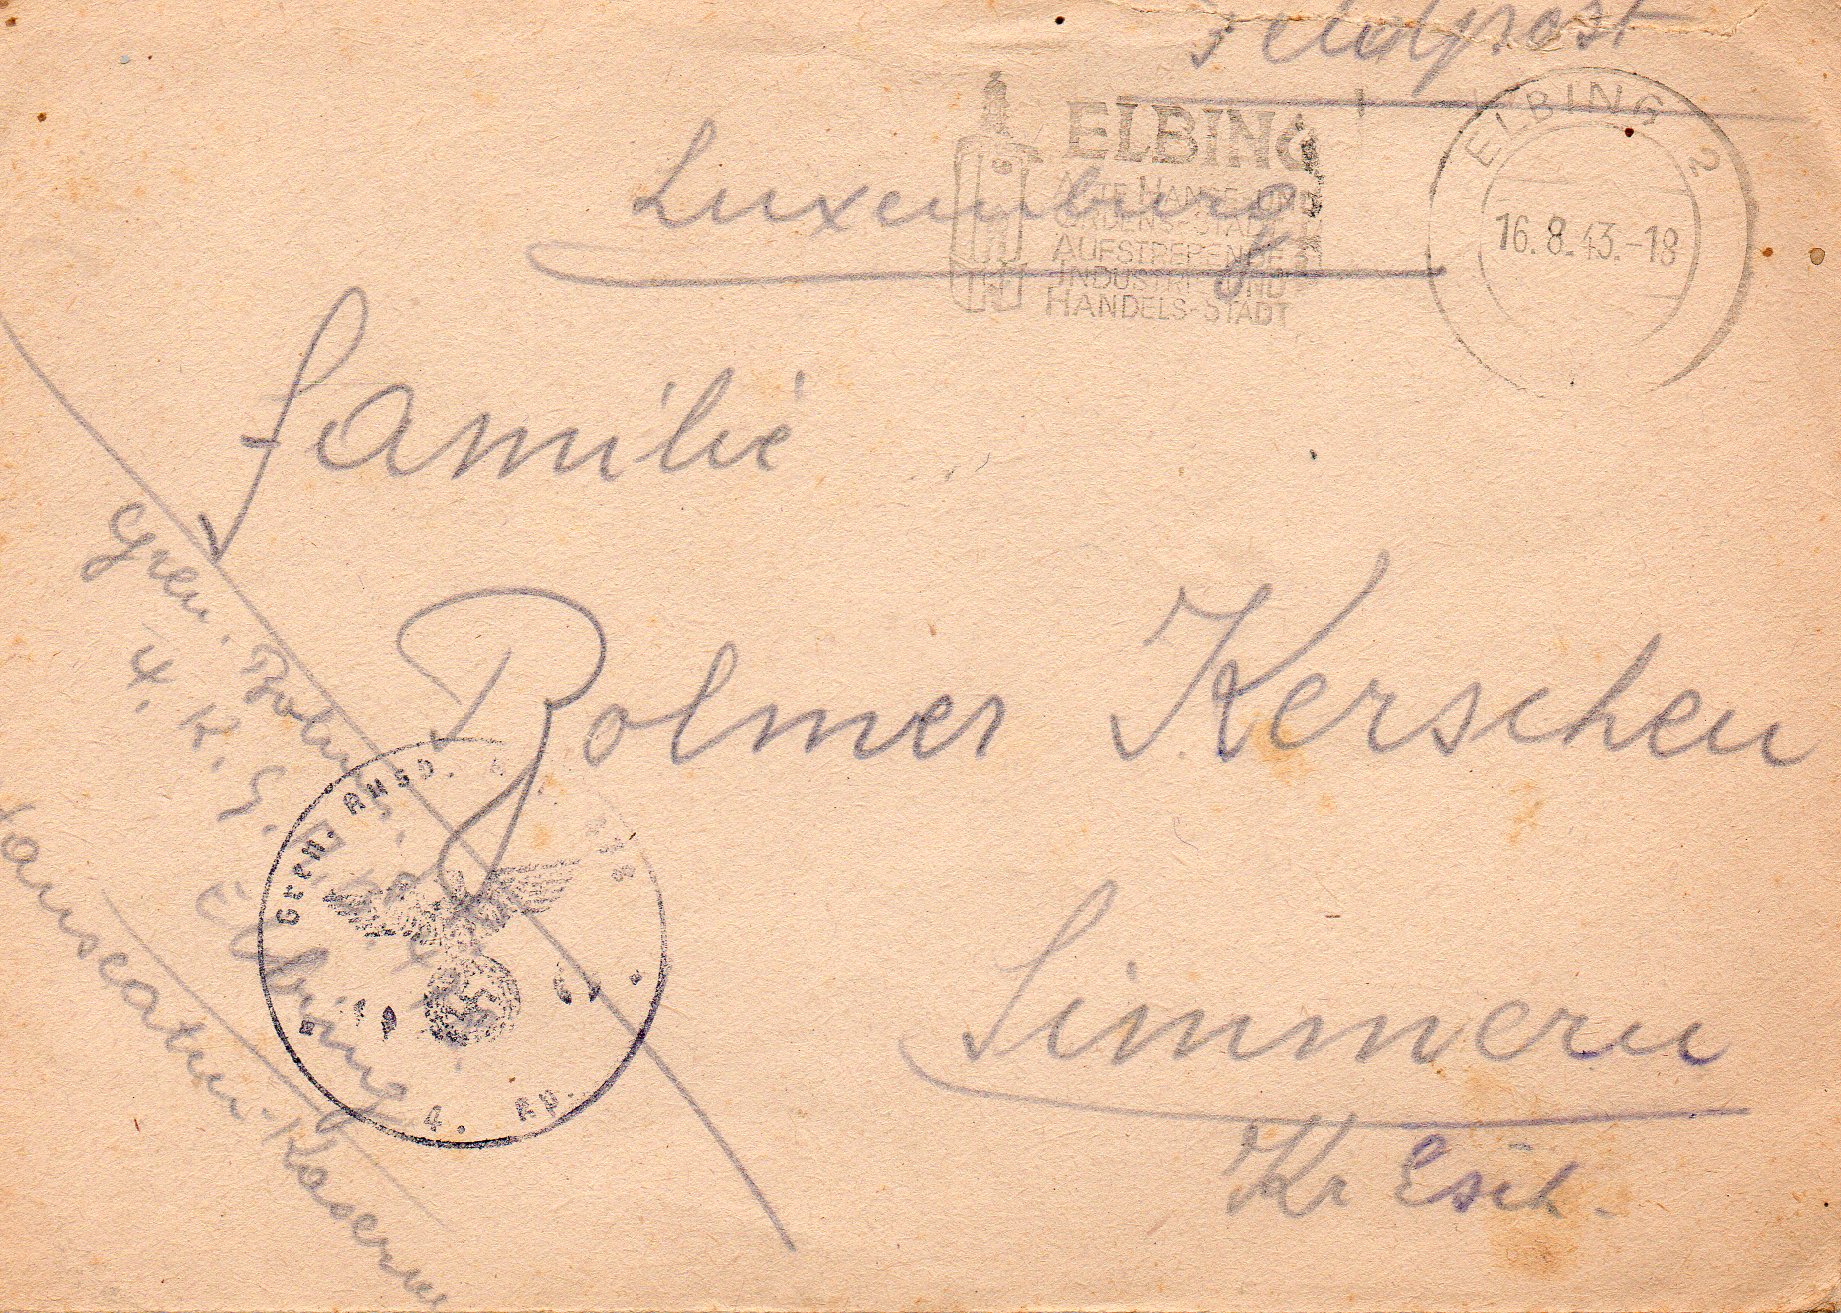 Feldpost
ELBING
ALTE HANSE- UND
ORDENS-STADT
AUFSTREBENDE
INDUSTRIE- UND
HANDELS-STADT
ELBING 2
16.8.43.-18
Luxemburg
Familie
Bolmer Kerschen
Simmern
Kr Esch.
Gren. Bolmer.
4. K. G.
Elbing
Hanseaten-Kaserne
Gren. Ausb.
4. Kp.